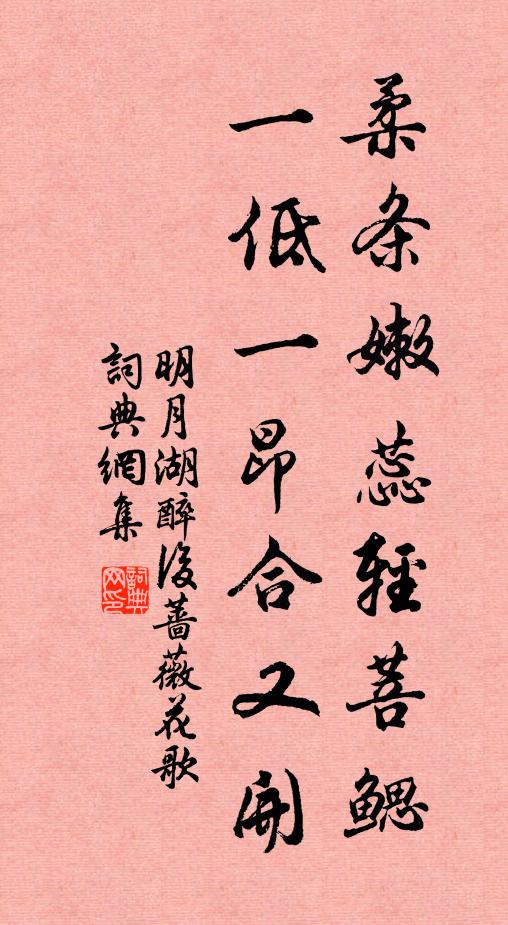 柔条嫩蕊轻菩鳃
一低一昂合又开
明月湖醉后蔷薇花歌
詞典網集
詞典网印